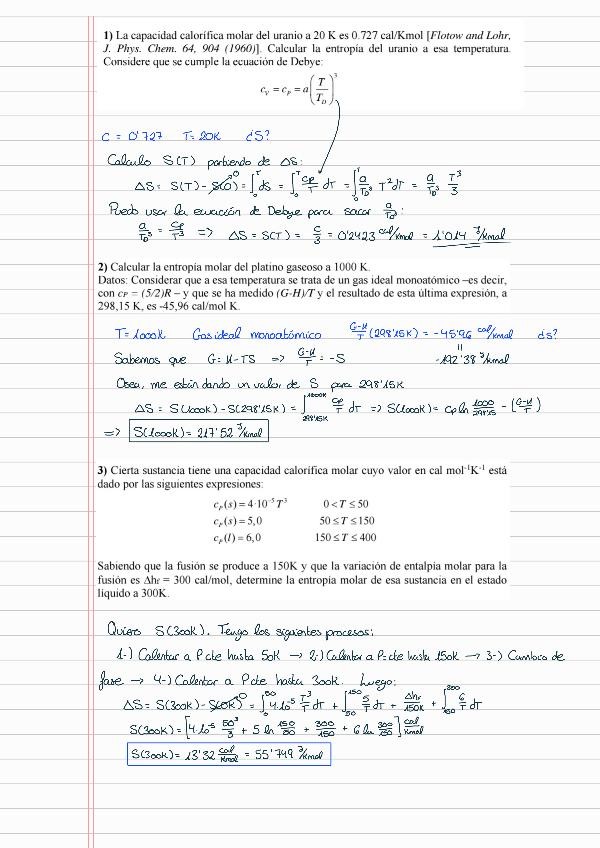 1) La capacidad calorífica molar del uranio a 20 K es 0.727 cal/Kmol [Flotow and Lohr,
J. Phys. Chem. 64, 904 (1960)]. Calcular la entropía del uranio a esa temperatura.
Considere que se cumple la ecuación de Debye:
c_V = c_P = a(T/T_D)^3
C = 0'727 T = 20K ¿S?
Calculo S(T) partiendo de ΔS:
ΔS = S(T) - S(0)^0 = ∫_0^T dS = ∫_0^T CP/T dT = ∫_0^T a/T_D^3 T^2 dT = a/T_D^3 T^3/3
Puedo usar la ecuación de Debye para sacar a/T_D^3:
a/T_D^3 = CP/T^3 => ΔS = S(T) = C/3 = 0'2423 cal/Kmol = 1'014 J/Kmol
2) Calcular la entropía molar del platino gaseoso a 1000 K.
Datos: Considerar que a esa temperatura se trata de un gas ideal monoatómico –es decir,
con cP = (5/2)R – y que se ha medido (G-H)/T y el resultado de esta última expresión, a
298,15 K, es -45,96 cal/mol K.
T = 1000K Gas ideal monoatómico G-H/T (298'15K) = -45'96 cal/Kmol ¿S?
Sabemos que G = H - TS => G-H/T = -S = -192'38 J/Kmol
Osea, me están dando un valor de S para 298'15K
ΔS = S(1000K) - S(298'15K) = ∫_298'15K^1000K CP/T dT => S(1000K) = CP ln 1000/298'15 - (G-H/T)
=> S(1000K) = 217'52 J/Kmol
3) Cierta sustancia tiene una capacidad calorífica molar cuyo valor en cal mol^-1K^-1 está
dado por las siguientes expresiones:
c_P(s) = 4·10^-5 T^3 0 < T ≤ 50
c_P(s) = 5,0 50 ≤ T ≤ 150
c_P(l) = 6,0 150 ≤ T ≤ 400
Sabiendo que la fusión se produce a 150K y que la variación de entalpía molar para la
fusión es Δhf = 300 cal/mol, determine la entropía molar de esa sustancia en el estado
líquido a 300K.
Quiero S(300K). Tengo los siguientes procesos:
1-) Calentar a P cte hasta 50K → 2-) Calentar a P=cte hasta 150K → 3-) Cambio de
fase → 4-) Calentar a P cte hasta 300K. Luego:
ΔS = S(300K) - S(0K)^0 = ∫_0^50 4·10^-5 T^3/T dT + ∫_50^150 5/T dT + Δhf/150K + ∫_150^300 6/T dT
S(300K) = [4·10^-5 50^3/3 + 5 ln 150/50 + 300/150 + 6 ln 300/150] cal/Kmol
S(300K) = 13'32 cal/Kmol = 55'749 J/Kmol